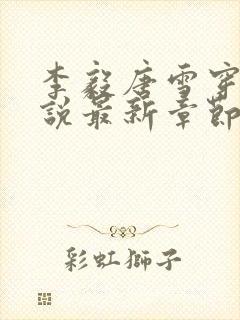 李毅唐雪穿
說最新章節
彩虹獅子